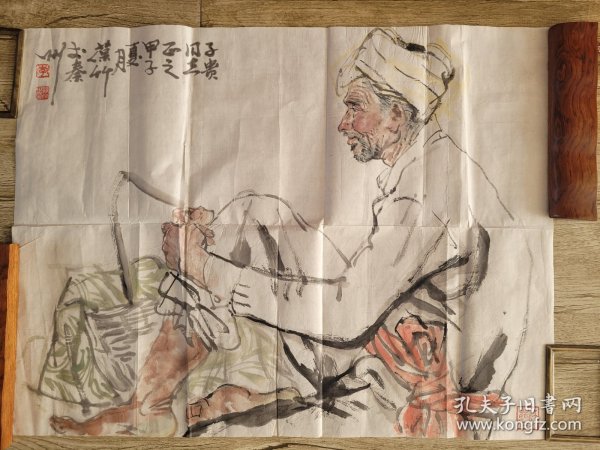 子贵
同志
正之
甲子
夏
月
于秦
州
孔夫子旧书网
www.kongfz.com